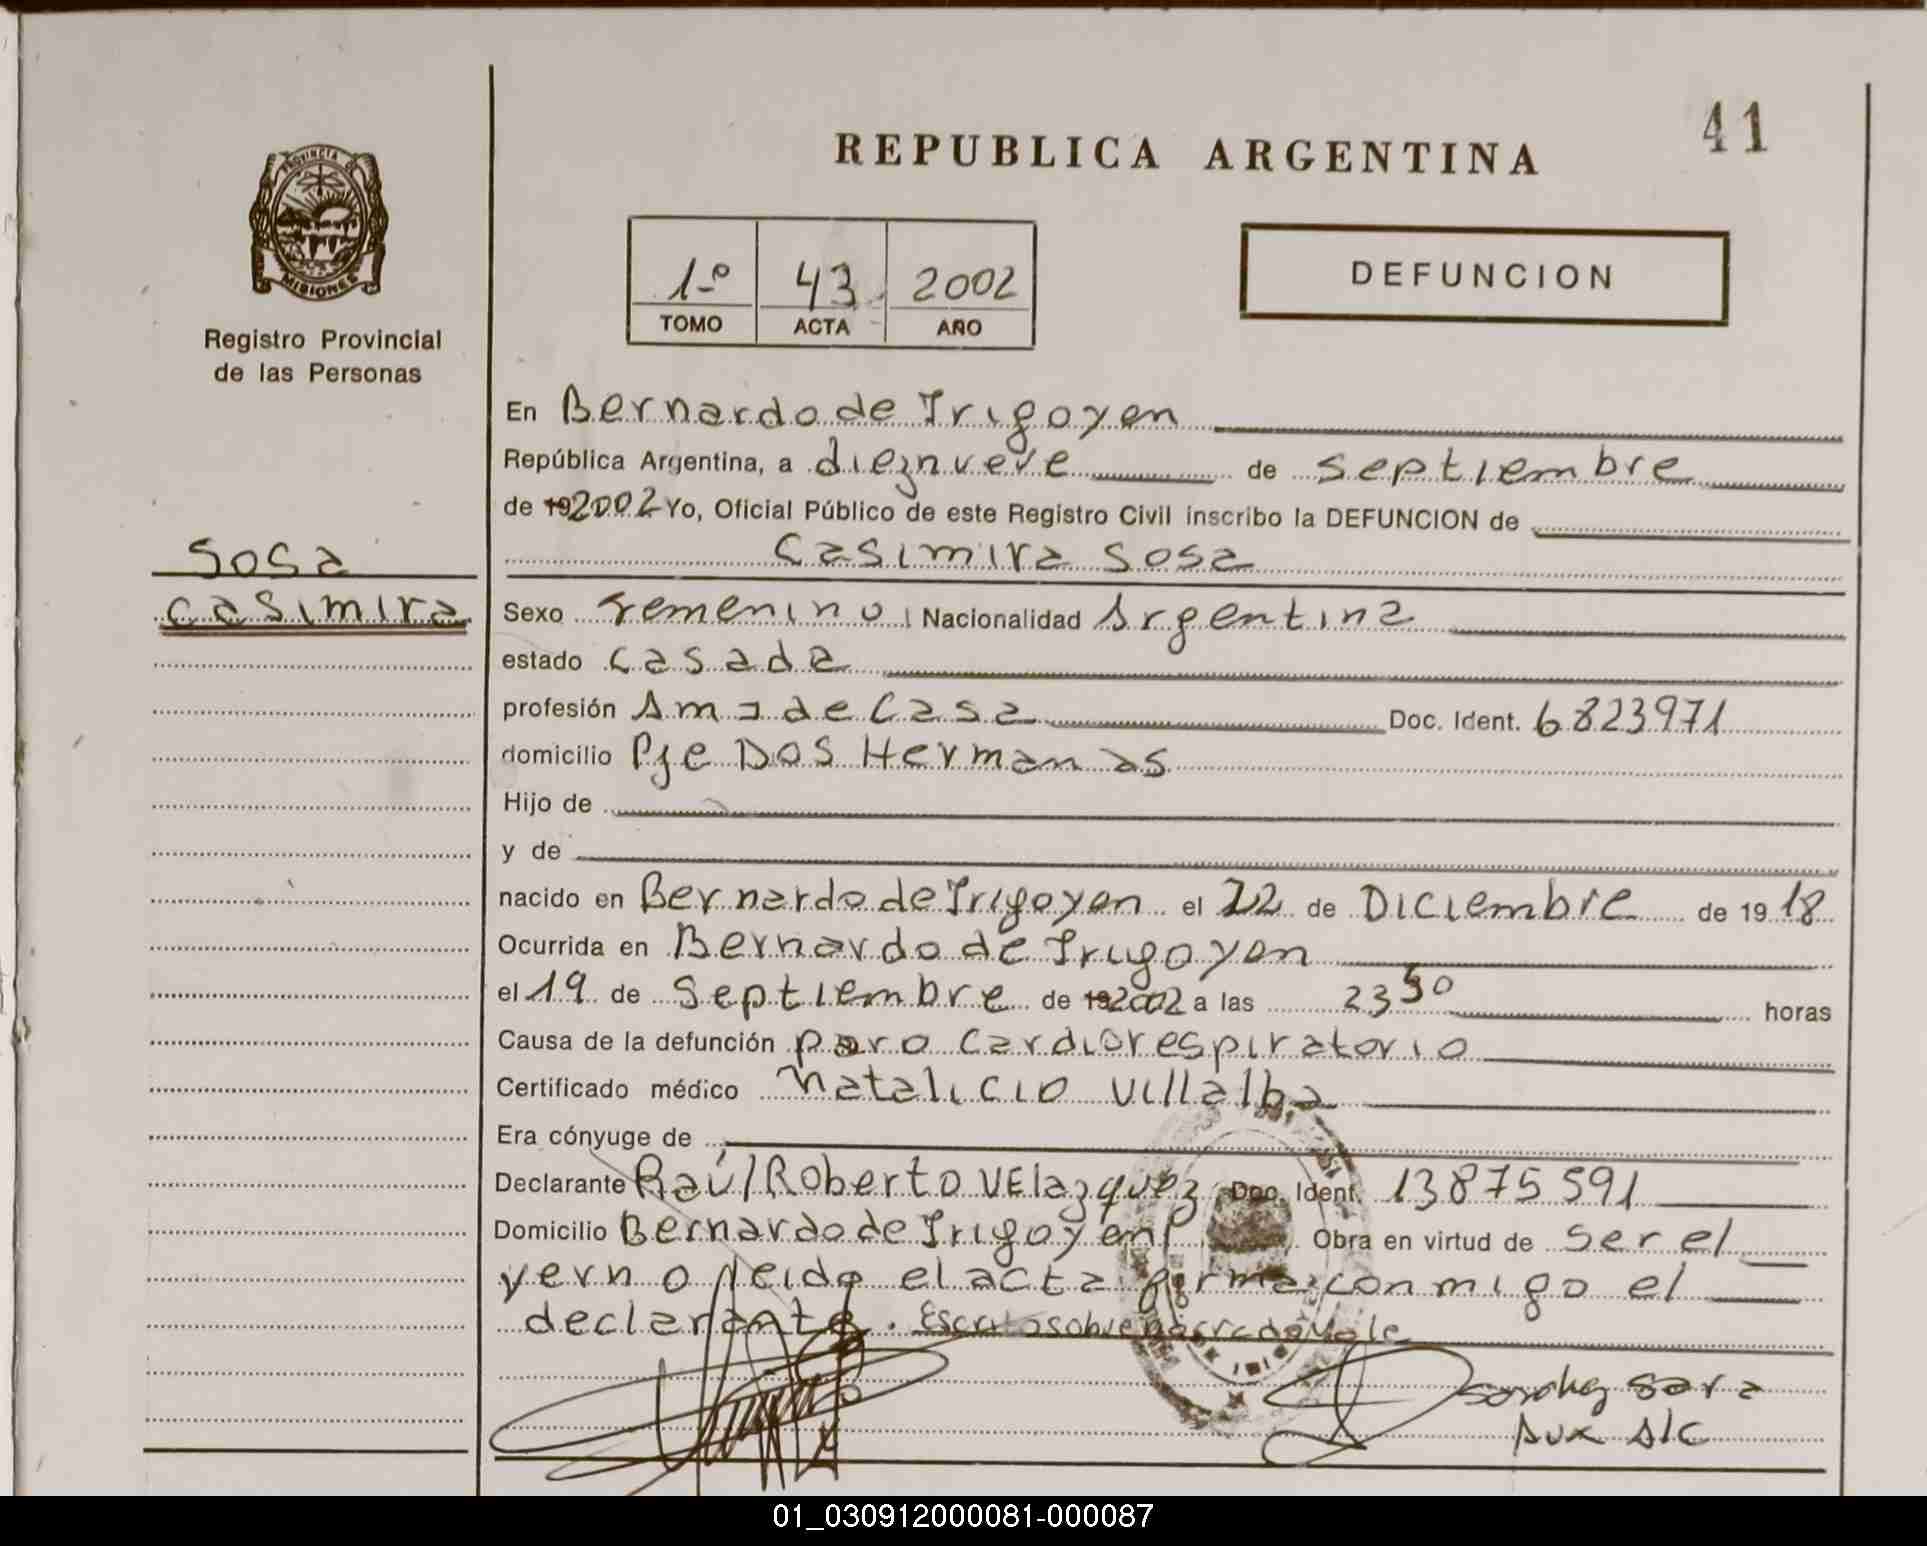 41
REPUBLICA ARGENTINA
PROVINCIA DE
MISIONES
Registro Provincial
de las Personas
1º 43 2002
TOMO ACTA AÑO
DEFUNCION
Sosa
Casimira
En Bernardo de Irigoyen
República Argentina, a dieznueve de septiembre
de 192002 Yo, Oficial Público de este Registro Civil inscribo la DEFUNCION de
Casimira Sosa
Sexo Femenino Nacionalidad Argentina
estado Casada
profesión Ama de Casa Doc. Ident. 6823971
domicilio Pje Dos Hermanas
Hijo de
y de
nacido en Bernardo de Irigoyen el 22 de Diciembre de 1918
Ocurrida en Bernardo de Irigoyen
el 19 de Septiembre de 192002 a las 23 30 horas
Causa de la defunción paro cardiorespiratorio
Certificado médico Natalicio Villalba
Era cónyuge de
Declarante Raúl Roberto Velazquez Doc. Ident. 13875591
Domicilio Bernardo de Irigoyen Obra en virtud de ser el
yerno leida el acta firma conmigo el
declarante. Escrito sobre borrado Vale
Sanchez Sara
Aux A/C
01_030912000081-000087